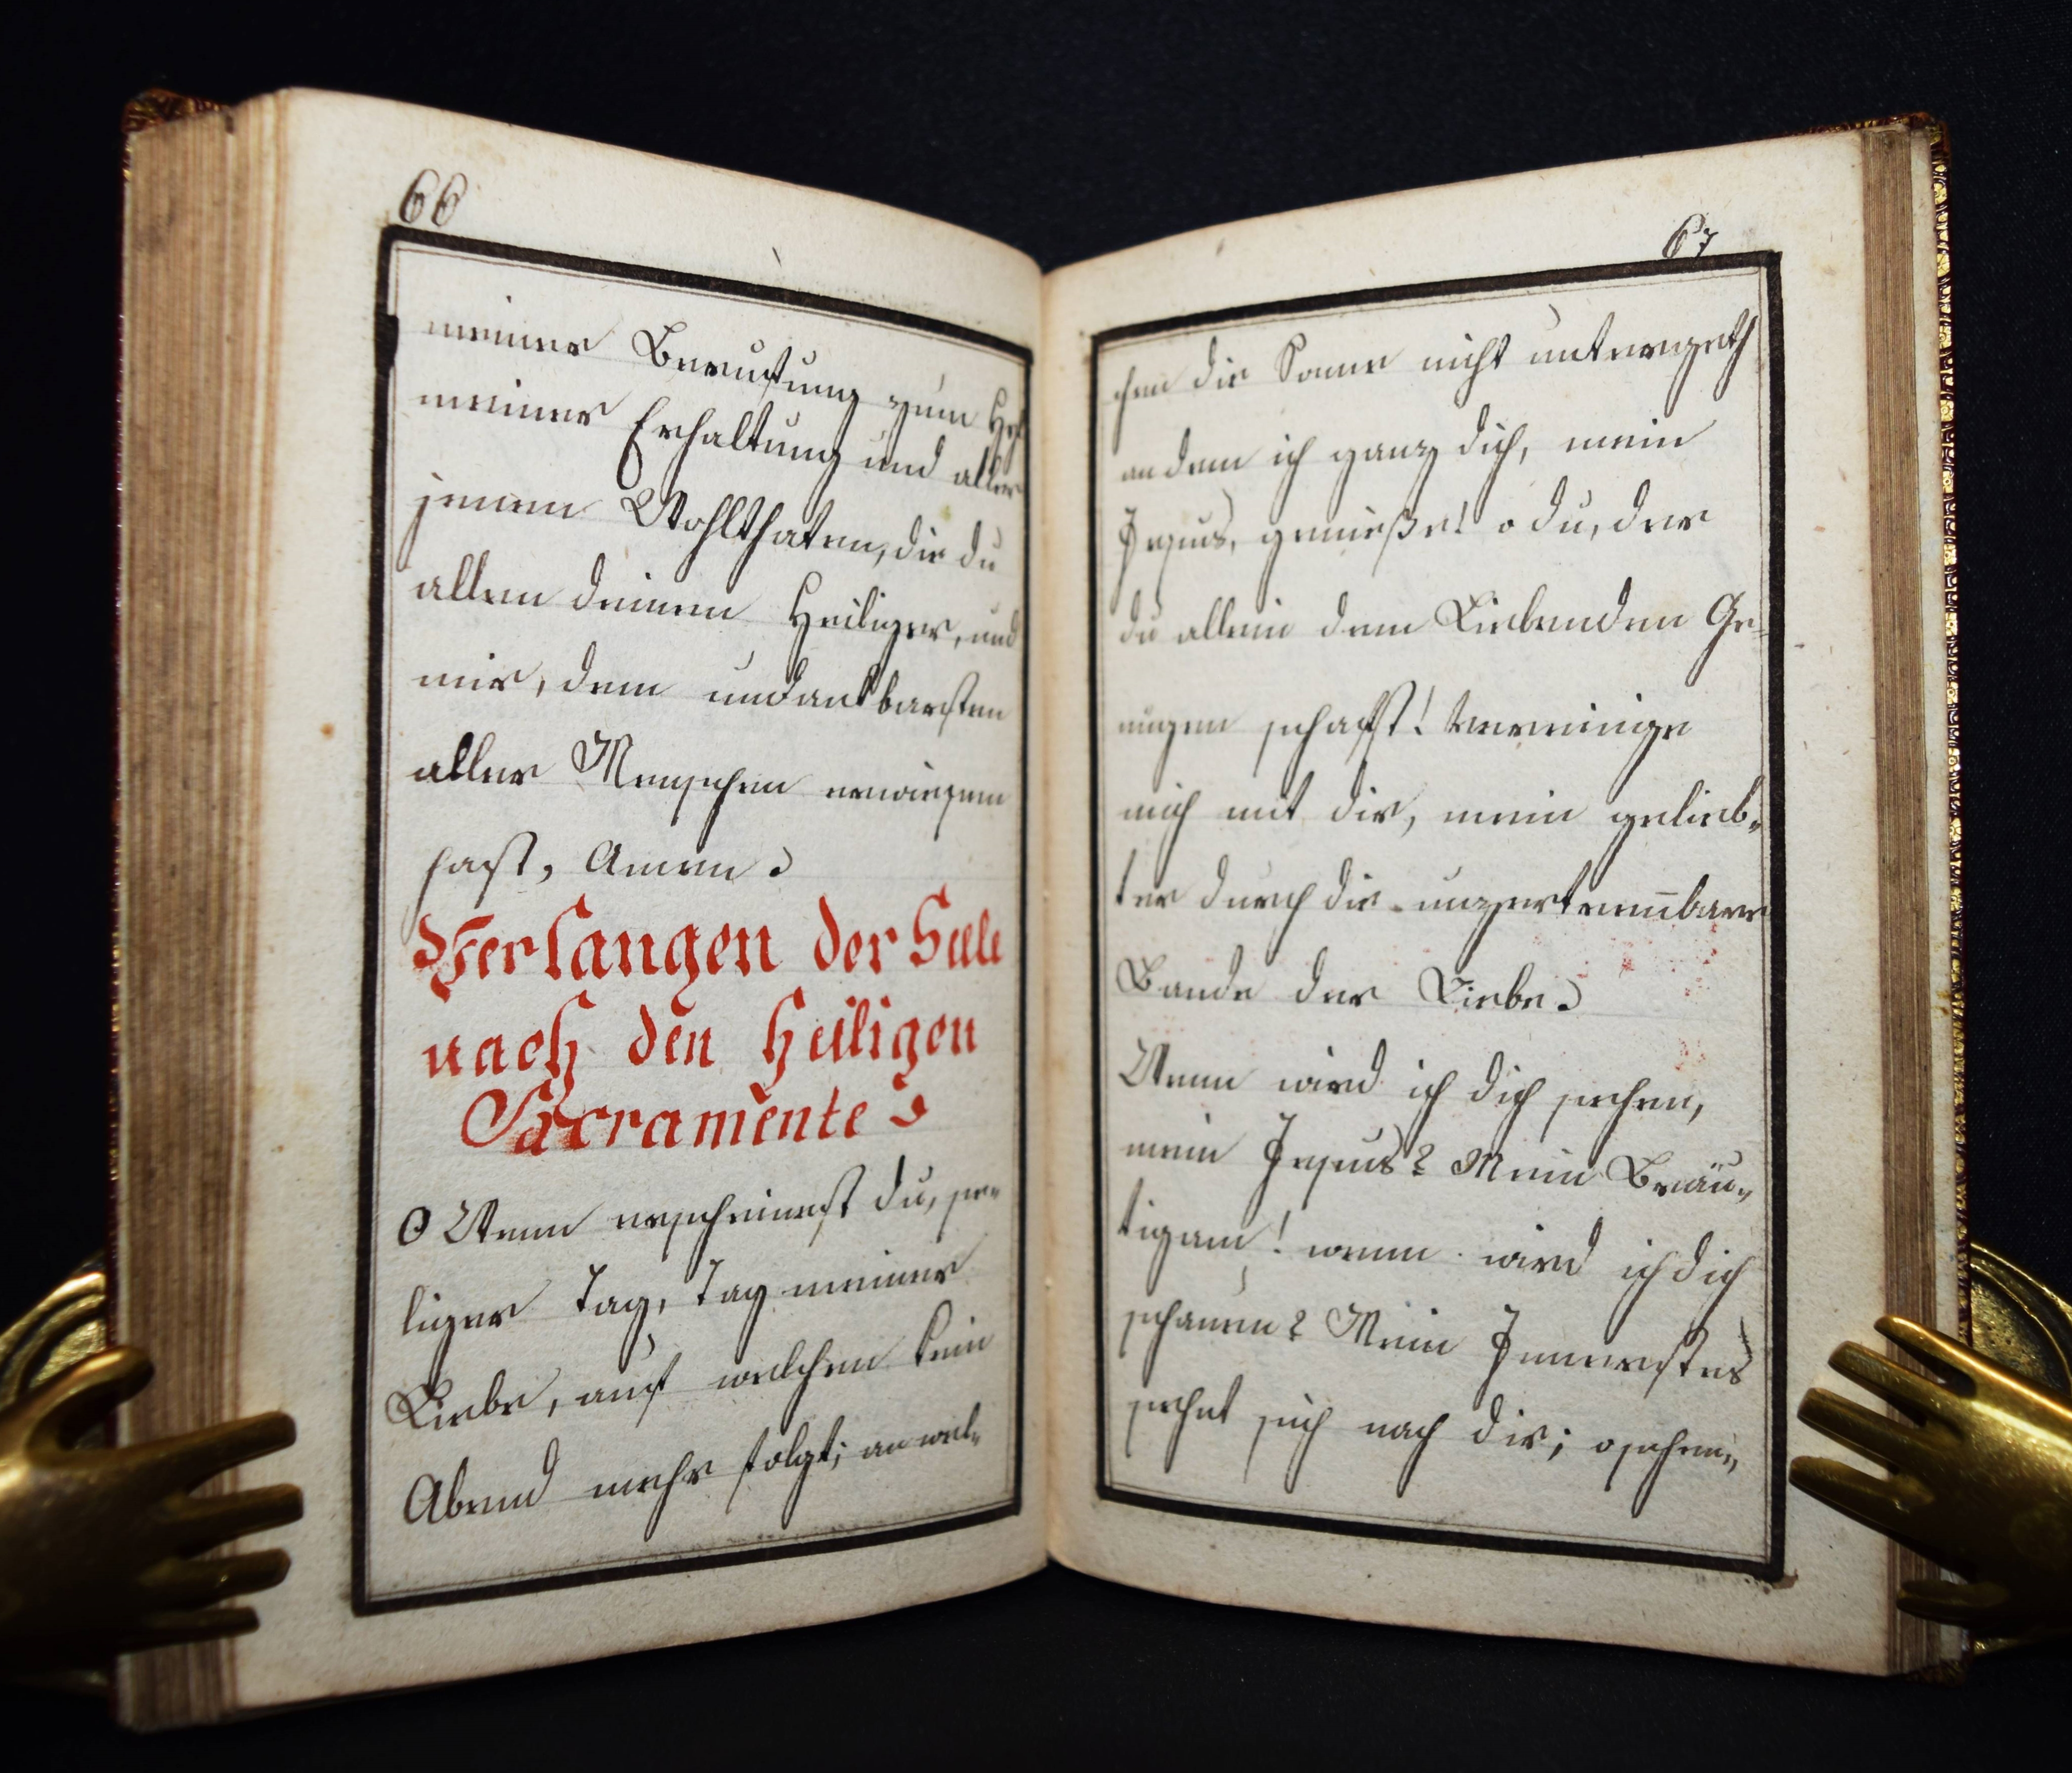 66
meiner Beruffung zum Heil
meiner Erhaltung und aller
jenen Wohlthaten, die du
allen deinen Heiliger, und
mir, dem undankbarsten
aller Menschen erwiesen
hast, Amen.
Verlangen der Seele
nach den Heiligen
Sacramente.
O Wenn erscheinest du, se-
liger Tag, Tag meiner
Liebe, auf welchen kein
Abend mehr folgt; an wel-
67
chen die Sonne nicht untergeth
an dem ich ganz dich, mein
Jesus, genieße! o du, der
du allein dem Liebenden Ge-
nügen schafst! Vereinige
mich mit dir, mein gelieb-
ter durch die unzertrennbare
Bande der Liebe.
Wenn wird ich dich sehen,
mein Jesus? Mein Bräu-
tigam! wenn wird ich dich
schauen? Mein Innerstes
sehnt sich nach dir; o sehen,